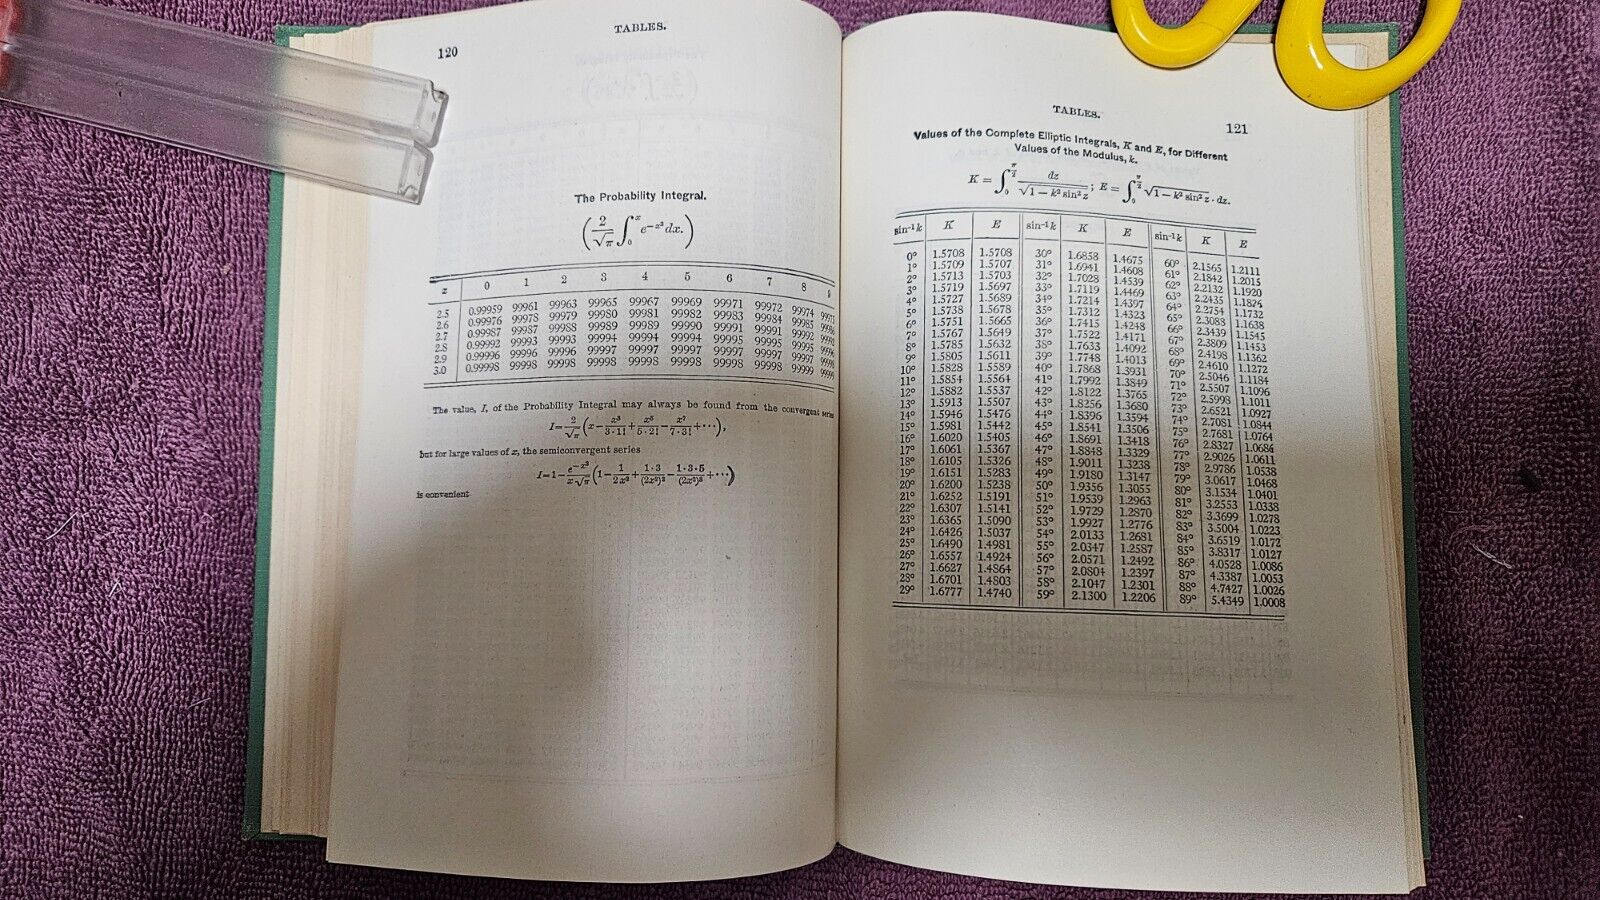 120
TABLES.
The Probability Integral.
(2/√π ∫₀ˣ e^{-x²} dx.)
x 0 1 2 3 4 5 6 7 8 9
2.5 0.99959 99961 99963 99965 99967 99969 99971 99972 99974 99975
2.6 0.99976 99978 99979 99980 99981 99982 99983 99984 99985 99986
2.7 0.99987 99987 99988 99989 99989 99990 99991 99991 99992 99992
2.8 0.99992 99993 99993 99994 99994 99994 99995 99995 99995 99996
2.9 0.99996 99996 99996 99997 99997 99997 99997 99997 99997 99998
3.0 0.99998 99998 99998 99998 99998 99998 99998 99998 99999 99999
The value, I, of the Probability Integral may always be found from the convergent series
I = 2/√π (x − x³/3·1! + x⁵/5·2! − x⁷/7·3! + ···),
but for large values of x, the semiconvergent series
I = 1 − e^{-x²}/x√π (1 − 1/2x² + 1·3/(2x²)² − 1·3·5/(2x²)³ + ···)
is convenient
TABLES.
121
Values of the Complete Elliptic Integrals, K and E, for Different
Values of the Modulus, k.
K = ∫₀^{π/2} dz/√1 − k² sin² z; E = ∫₀^{π/2} √1 − k² sin² z · dz.
sin⁻¹k K E sin⁻¹k K E sin⁻¹k K E
0° 1.5708 1.5708 30° 1.6858 1.4675 60° 2.1565 1.2111
1° 1.5709 1.5707 31° 1.6941 1.4608 61° 2.1842 1.2015
2° 1.5713 1.5703 32° 1.7028 1.4539 62° 2.2132 1.1920
3° 1.5719 1.5697 33° 1.7119 1.4469 63° 2.2435 1.1826
4° 1.5727 1.5689 34° 1.7214 1.4397 64° 2.2754 1.1732
5° 1.5738 1.5678 35° 1.7312 1.4323 65° 2.3088 1.1638
6° 1.5751 1.5665 36° 1.7415 1.4248 66° 2.3439 1.1545
7° 1.5767 1.5649 37° 1.7522 1.4171 67° 2.3809 1.1453
8° 1.5785 1.5632 38° 1.7633 1.4092 68° 2.4198 1.1362
9° 1.5805 1.5611 39° 1.7748 1.4013 69° 2.4610 1.1272
10° 1.5828 1.5589 40° 1.7868 1.3931 70° 2.5046 1.1184
11° 1.5854 1.5564 41° 1.7992 1.3849 71° 2.5507 1.1096
12° 1.5882 1.5537 42° 1.8122 1.3765 72° 2.5998 1.1011
13° 1.5913 1.5507 43° 1.8256 1.3680 73° 2.6521 1.0927
14° 1.5946 1.5476 44° 1.8396 1.3594 74° 2.7081 1.0844
15° 1.5981 1.5442 45° 1.8541 1.3506 75° 2.7681 1.0764
16° 1.6020 1.5405 46° 1.8691 1.3418 76° 2.8327 1.0686
17° 1.6061 1.5367 47° 1.8848 1.3329 77° 2.9026 1.0611
18° 1.6105 1.5326 48° 1.9011 1.3238 78° 2.9786 1.0538
19° 1.6151 1.5283 49° 1.9180 1.3147 79° 3.0617 1.0468
20° 1.6200 1.5238 50° 1.9356 1.3055 80° 3.1534 1.0401
21° 1.6252 1.5191 51° 1.9539 1.2963 81° 3.2553 1.0338
22° 1.6307 1.5141 52° 1.9729 1.2870 82° 3.3699 1.0278
23° 1.6365 1.5090 53° 1.9927 1.2776 83° 3.5004 1.0223
24° 1.6426 1.5037 54° 2.0133 1.2681 84° 3.6519 1.0172
25° 1.6490 1.4981 55° 2.0347 1.2587 85° 3.8317 1.0127
26° 1.6557 1.4924 56° 2.0571 1.2492 86° 4.0528 1.0086
27° 1.6627 1.4864 57° 2.0804 1.2397 87° 4.3387 1.0053
28° 1.6701 1.4803 58° 2.1047 1.2301 88° 4.7427 1.0026
29° 1.6777 1.4740 59° 2.1300 1.2206 89° 5.4349 1.0008